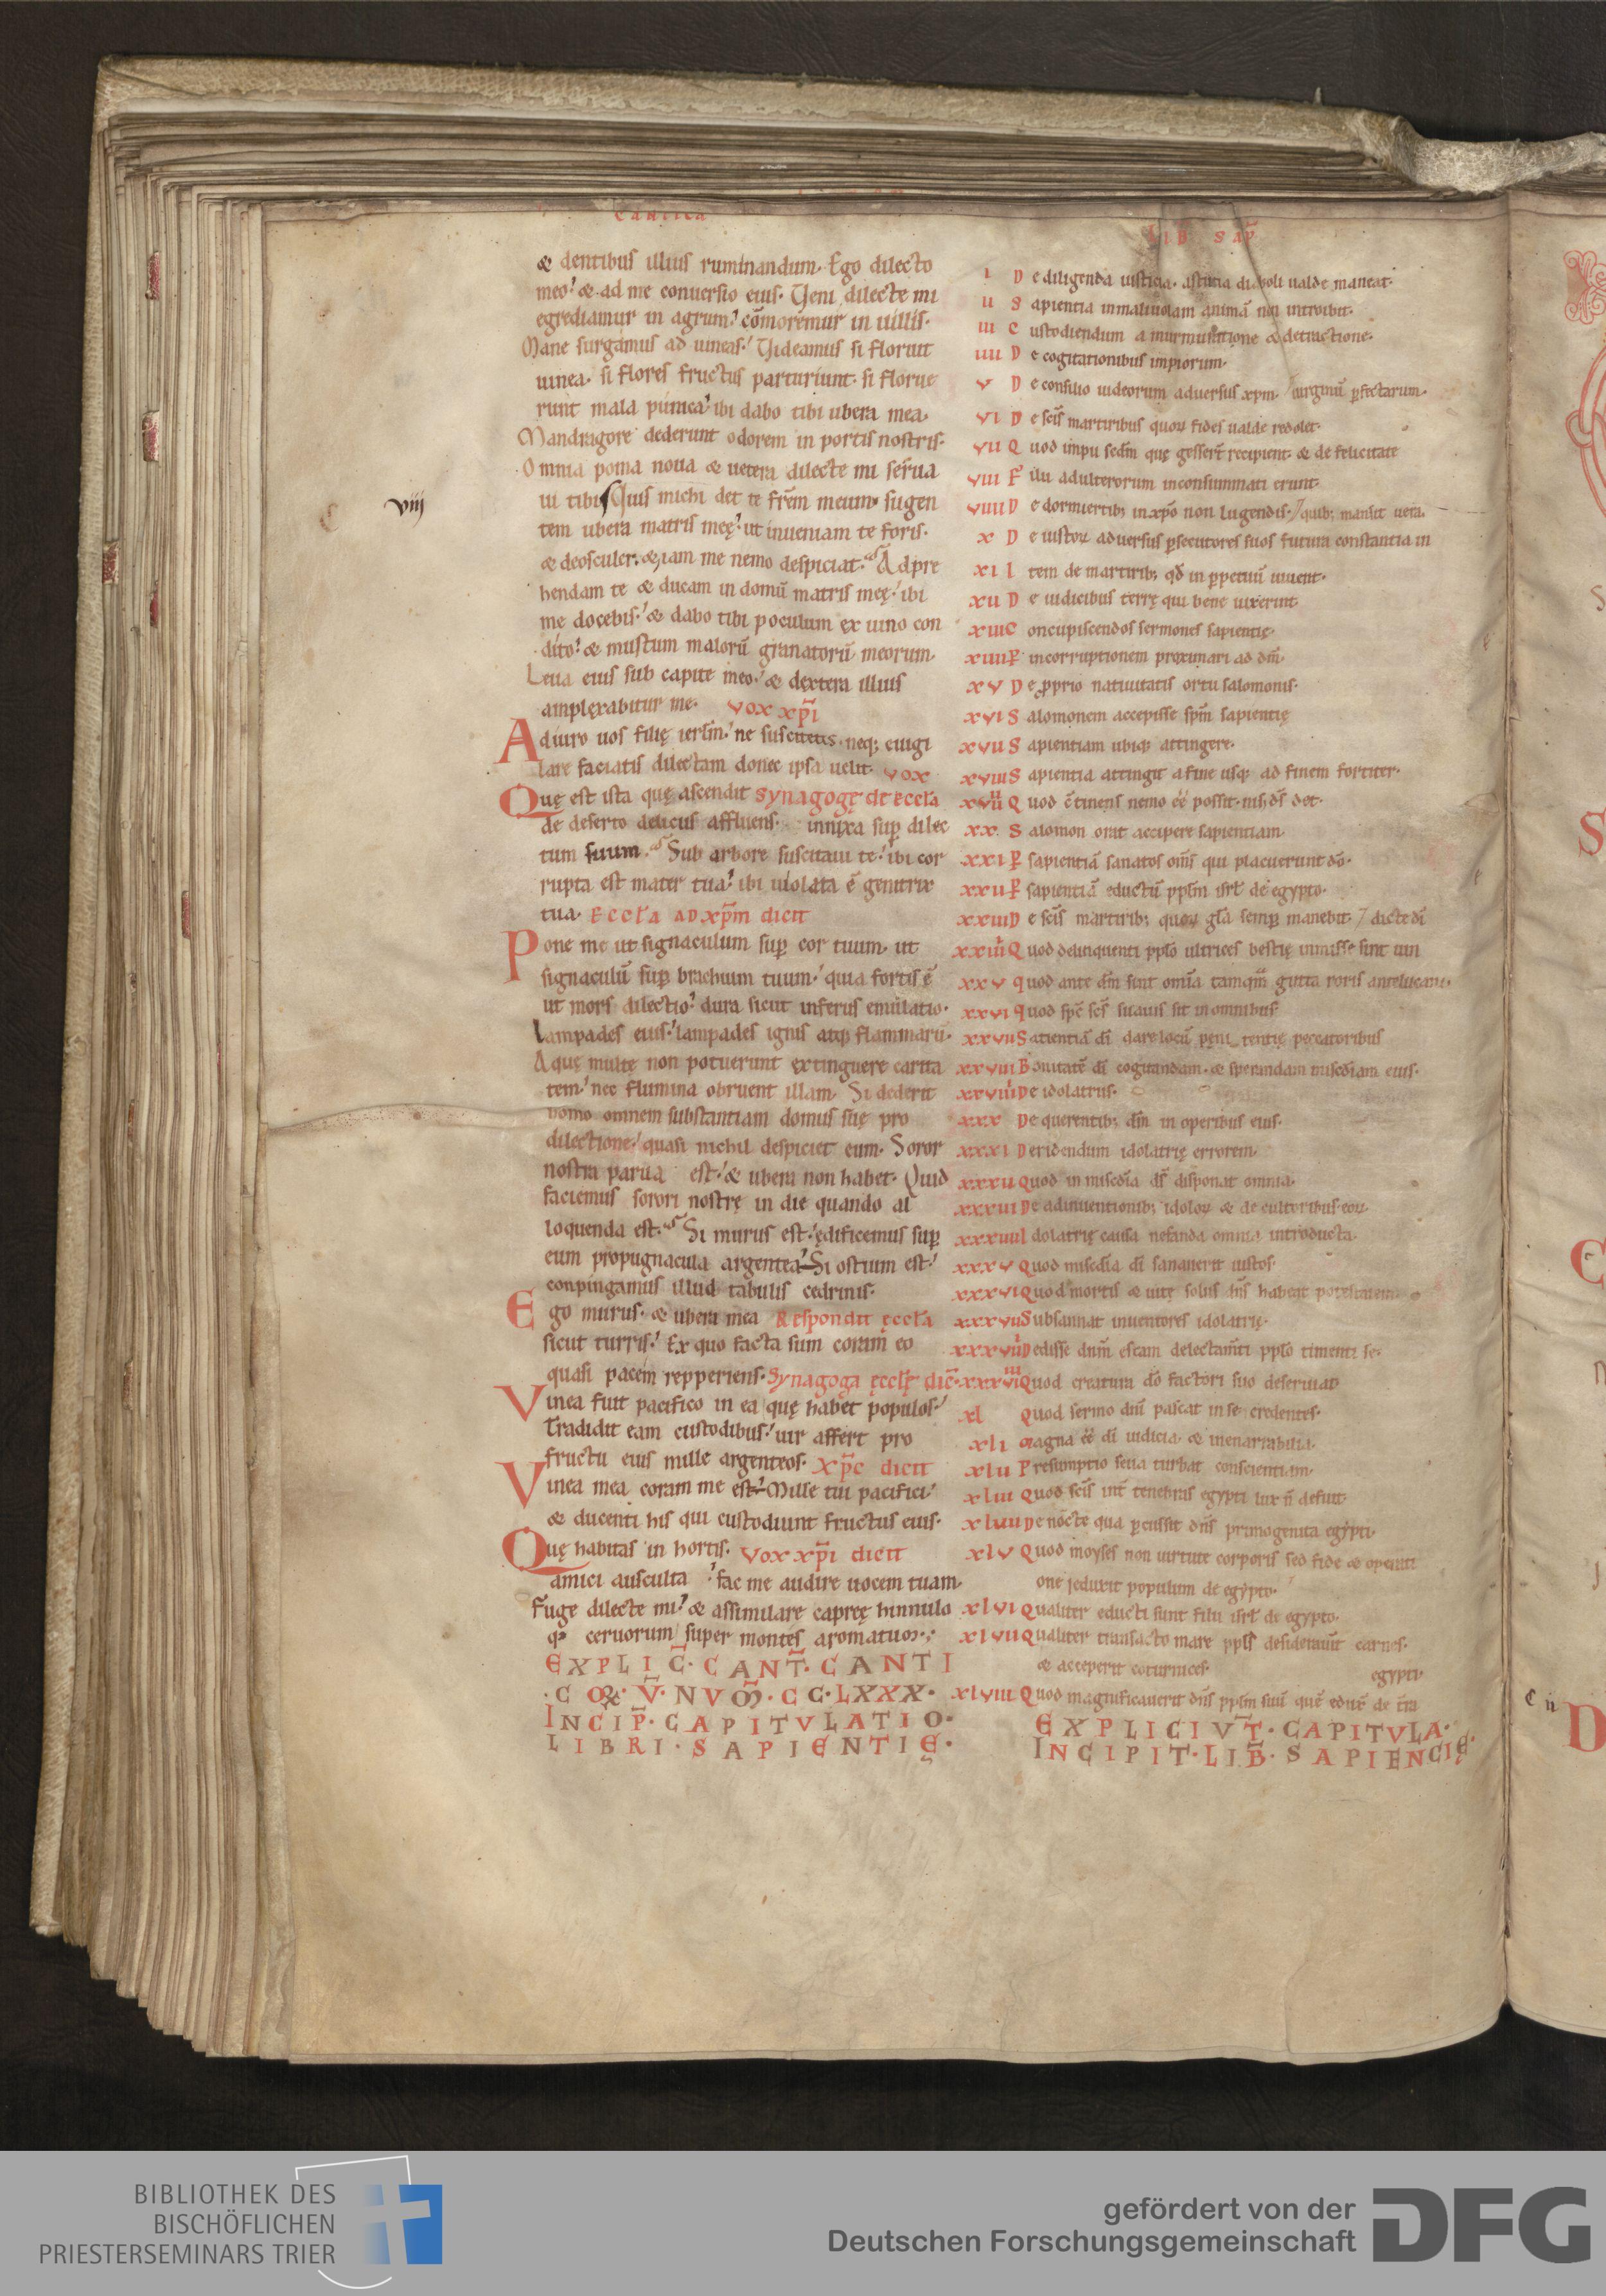 Cantica
& dentibus illius ruminandum. Ego dilecto
meo. & ad me conuersio eius. Ueni dilecte mi
egrediamur in agrum. cōmoremur in uillis.
Mane surgamus ad uineas. Uideamus si floruit
uinea. si flores fructus parturiunt. si florue
runt mala punica. ibi dabo tibi ubera mea.
Mandragore dederunt odorem in portis nostris.
Omnia poma noua & uetera dilecte mi serua
viij
ui tibi Quis michi det te frēm meum sugen
tem ubera matris meę. ut inueniam te foris.
& deosculer. & iam me nemo despiciat. Adpre
hendam te & ducam in domū matris meę. ibi
me docebis. & dabo tibi poculum ex uino con
dito. & mustum malorū granatorū meorum.
Leua eius sub capite meo. & dextera illius
amplexabitur me. vox xp̄i
Adiuro uos filię ierlm̄. ne suscitetis. neq; euigi
lare faciatis dilectam donec ipsa uelit. vox
Quę est ista quę ascendit synagogę de eccl̄a
de deserto deliciis affluens. innixa suꝑ dilec
tum suum. Sub arbore suscitaui te. ibi cor
rupta est mater tua. ibi uiolata ē genitrix
tua. Eccl̄a ad xp̄m dicit
Pone me ut signaculum suꝑ cor tuum. ut
signaculū suꝑ brachium tuum. quia fortis ē
ut mors dilectio. dura sicut inferus emulatio.
Lampades eius. lampades ignis atq; flammarū.
Aquę multę non potuerunt extinguere carita
tem. nec flumina obruent illam. Si dederit
homo omnem substantiam domus suę pro
dilectione. quasi nichil despiciet eum. Soror
nostra parua est. & ubera non habet. Quid
faciemus sorori nostrę in die quando al
loquenda est. Si murus est. ędificemus suꝑ
eum propugnacula argentea. Si ostium est.
conpingamus illud tabulis cedrinis.
Ego murus. & ubera mea Respondit eccl̄a
sicut turris. Ex quo facta sum coram eo
quasi pacem repperiens. Synagoga ęccl̄ę dic̄.
Vinea fuit pacifico in ea quę habet populos.
Tradidit eam custodibus. uir affert pro
fructu eius mille argenteos. xp̄c dicit
Vinea mea coram me est. Mille tui pacifici.
& ducenti his qui custodiunt fructus eius.
Quę habitas in hortis. Vox xp̄i dicit
amici ausculta. fac me audire uocem tuam.
Fuge dilecte mi. & assimilare capreę hinnulo
q; ceruorum super montes aromatum.
EXPLIC̄. CANT̄. CANTI
COꝜ. V̄. NVM̄. CC. LXXX.
INCIP̄. CAPITVLATIO.
LIBRI. SAPIENTIĘ.
LIB SAP̄
I De diligenda iusticia. astucia diaboli ualde maneat.
II Sapientia in maliuolam animā non introibit.
III Custodiendum a murmuratione & detractione.
IIII De cogitationibus impiorum.
V De consilio iudeorum aduersus xpm. / uirginū ꝑfectarum.
VI De sc̄is martiribus quoꝝ fides ualde redolet.
VII Quod impii sedm̄ quę gesser̄t recipient. & de felicitate
VIII Filii adulterorum inconsummati erunt.
VIIII De dormientib; in xp̄o non lugendis. / quib; mansit uera.
X De iustoꝝ aduersus ꝑsecutores suos futura constantia in
XI Item de martirib; qd̄ in ꝑpetuū uiuent.
XII De iudicibus terrę qui bene uixerint.
XIII Concupiscendos sermones sapientię.
XIIII P incorruptionem proximari ad dm̄.
XV De ꝓprio natiuitatis ortu salomonis.
XVI Salomonem accepisse sp̄m sapientię
XVII Sapientiam ubiq; attingere.
XVIII Sapientia attingit a fine usq; ad finem fortiter.
XVIIII Quod c̄tinens nemo eē possit. nisi ds̄ det.
XX Salomon orat accipere sapientiam.
XXI P sapientiā sanatos om̄s qui placuerunt dō.
XXII P sapientiā eductū pplm̄ isrl̄ de egypto.
XXIII De sc̄is martirib; quoꝝ gl̄a semꝑ manebit. / dicte dī
XXIIII Quod delinquenti pplō ultrices bestię inmisse sint uin
XXV Quod ante dm̄ sint omīa tamqm̄ gutta roris antelucani.
XXVI Quod sp̄c sc̄s suauis sit in omnibus.
XXVII Satientiā dī dare locū pęni tentię peccatoribus
XXVIII Bonitatē dī cogitandam. & sperandam misc̄diam eius.
XXVIIII De idolatriis.
XXX De querentib; dm̄ in operibus eius.
XXXI Deridendum idolatrię errorem.
XXXII Quod in misc̄dia ds̄ disponat omnia.
XXXIII De adinuentionib; idoloꝝ & de cultoribus eoꝝ.
XXXIIII Idolatrię causa nefanda omnia introducta.
XXXV Quod misc̄dia dī sanauerit iustos.
XXXVI Quod mortis & uitę solus dn̄s habeat potestatem
XXXVII Subsannat inuentores idolatrię.
XXXVIII Dedisse dnm̄ escam delectam̄ti pplō timenti se.
XXXVIIII Quod creatura dō factori suo deseruiat
XL Quod sermo dnī pascat in se credentes.
XLI Magna eē dī iudicia. & inenarrabilia.
XLII Presumptio seua turbat conscientiam.
XLIII Quod sc̄is int̄ tenebras egypti lux n̄ defuit.
XLIIII De nocte qua ꝑcussit dn̄s primogenita egypti.
XLV Quod moyses non uirtute corporis sed fide & operati
one eduxit populum de egypto.
XLVI Qualiter educti sunt filii isrl̄ de egypto.
XLVII Qualiter transacto mare ppls̄ desiderauit carnes.
& acceperit coturnices.
egypti.
XLVIII Quod magnificauerit dn̄s pplm̄ suū quē edux̄ de t̄ra
EXPLICIVN̄T. CAPITVLA.
INCIPIT. LIB̄. SAPIENCIĘ.
C ii
D
BIBLIOTHEK DES
BISCHÖFLICHEN
PRIESTERSEMINARS TRIER
gefördert von der
Deutschen Forschungsgemeinschaft
DFG